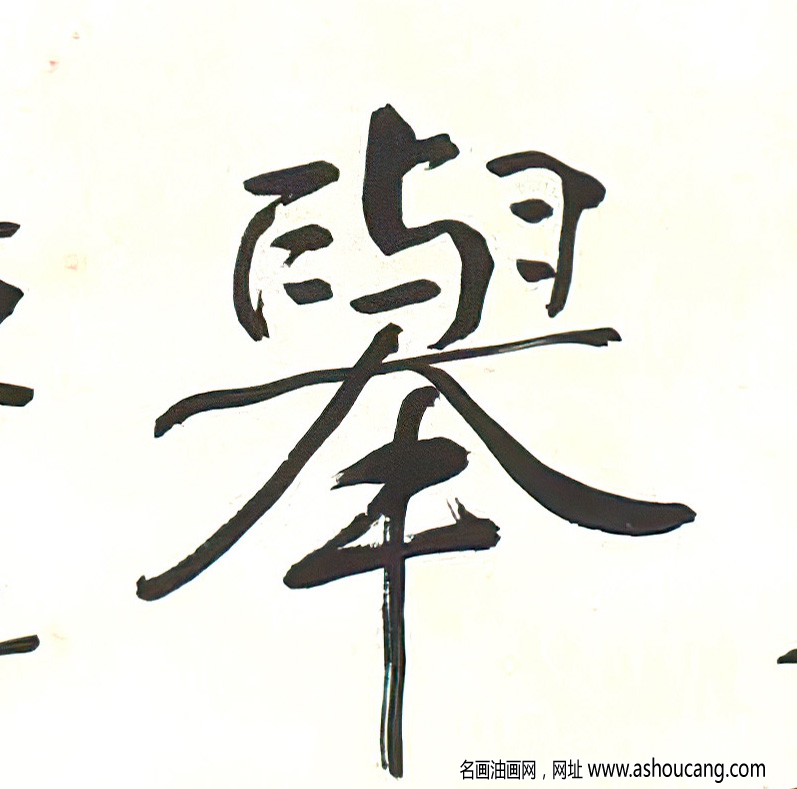 舉
名画油画网，网址 www.ashoucang.com